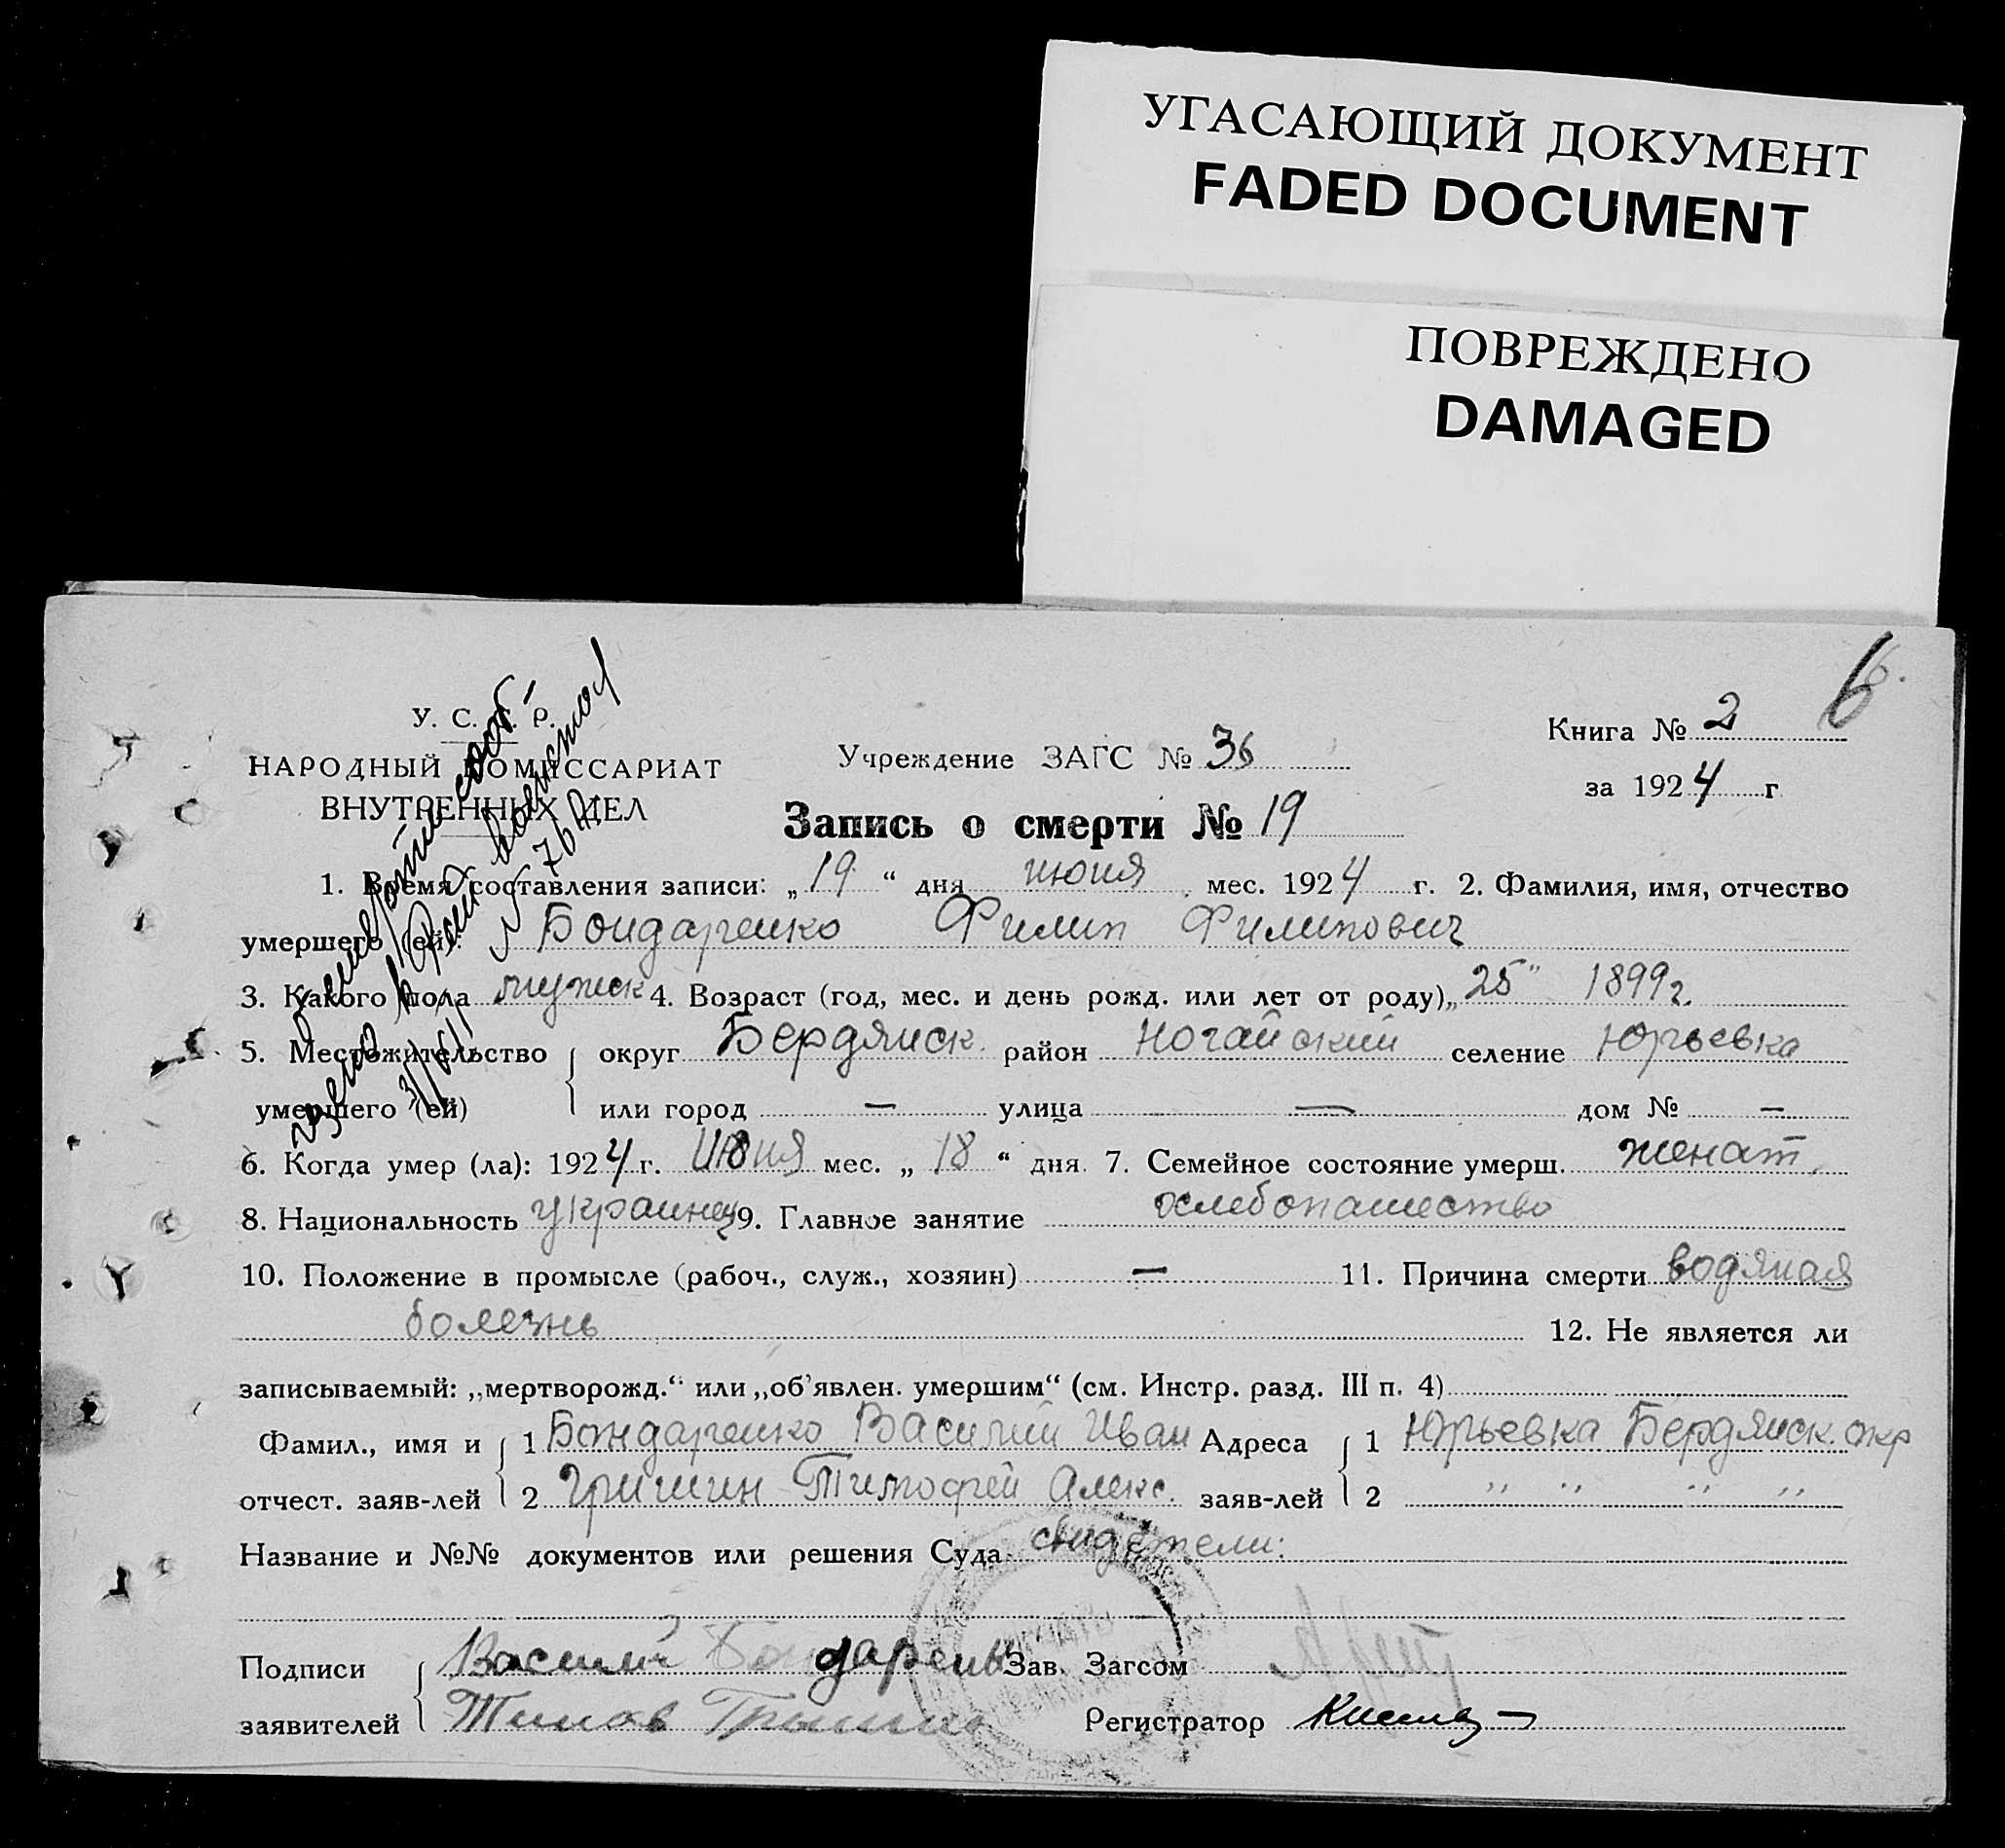 УГАСАЮЩИЙ ДОКУМЕНТ
FADED DOCUMENT
ПОВРЕЖДЕНО
DAMAGED
6
У. С. Р.
НАРОДНЫЙ КОМИССАРИАТ
ВНУТРЕННЫХ ДЕЛ
Учреждение ЗАГС № 36
Книга № 2
за 1924 г
Запись о смерти № 19
1. Время составления записи: „19“ дня июня мес. 1924 г. 2. Фамилия, имя, отчество
умершего (ей): Бондаренко Филип Филипович
3. Какого пола мужск 4. Возраст (год, мес. и день рожд. или лет от роду) „25" 1899 г.
5. Местожительство округ Бердянск. район Ногайский селение Юрьевка
умершего (ей) или город — улица — дом № —
6. Когда умер (ла): 1924 г. Июня мес. „18“ дня. 7. Семейное состояние умерш. женат.
8. Национальность украинец 9. Главное занятие хлебопашество
10. Положение в промысле (рабоч., служ., хозяин) — 11. Причина смерти водяная
болезнь 12. Не является ли
записываемый: „мертворожд.“ или „об'явлен. умершим“ (см. Инстр. разд. III п. 4)
Фамил., имя и 1 Бондаренко Василий Иван Адреса 1 Юрьевка Бердянск. окр
отчест. заяв-лей 2 Гришин Тимофей Алекс. заяв-лей 2 " " " "
Название и №№ документов или решения Суда свидетели:
Подписи Василий Бондаренко Зав. Загсом
заявителей Регистратор